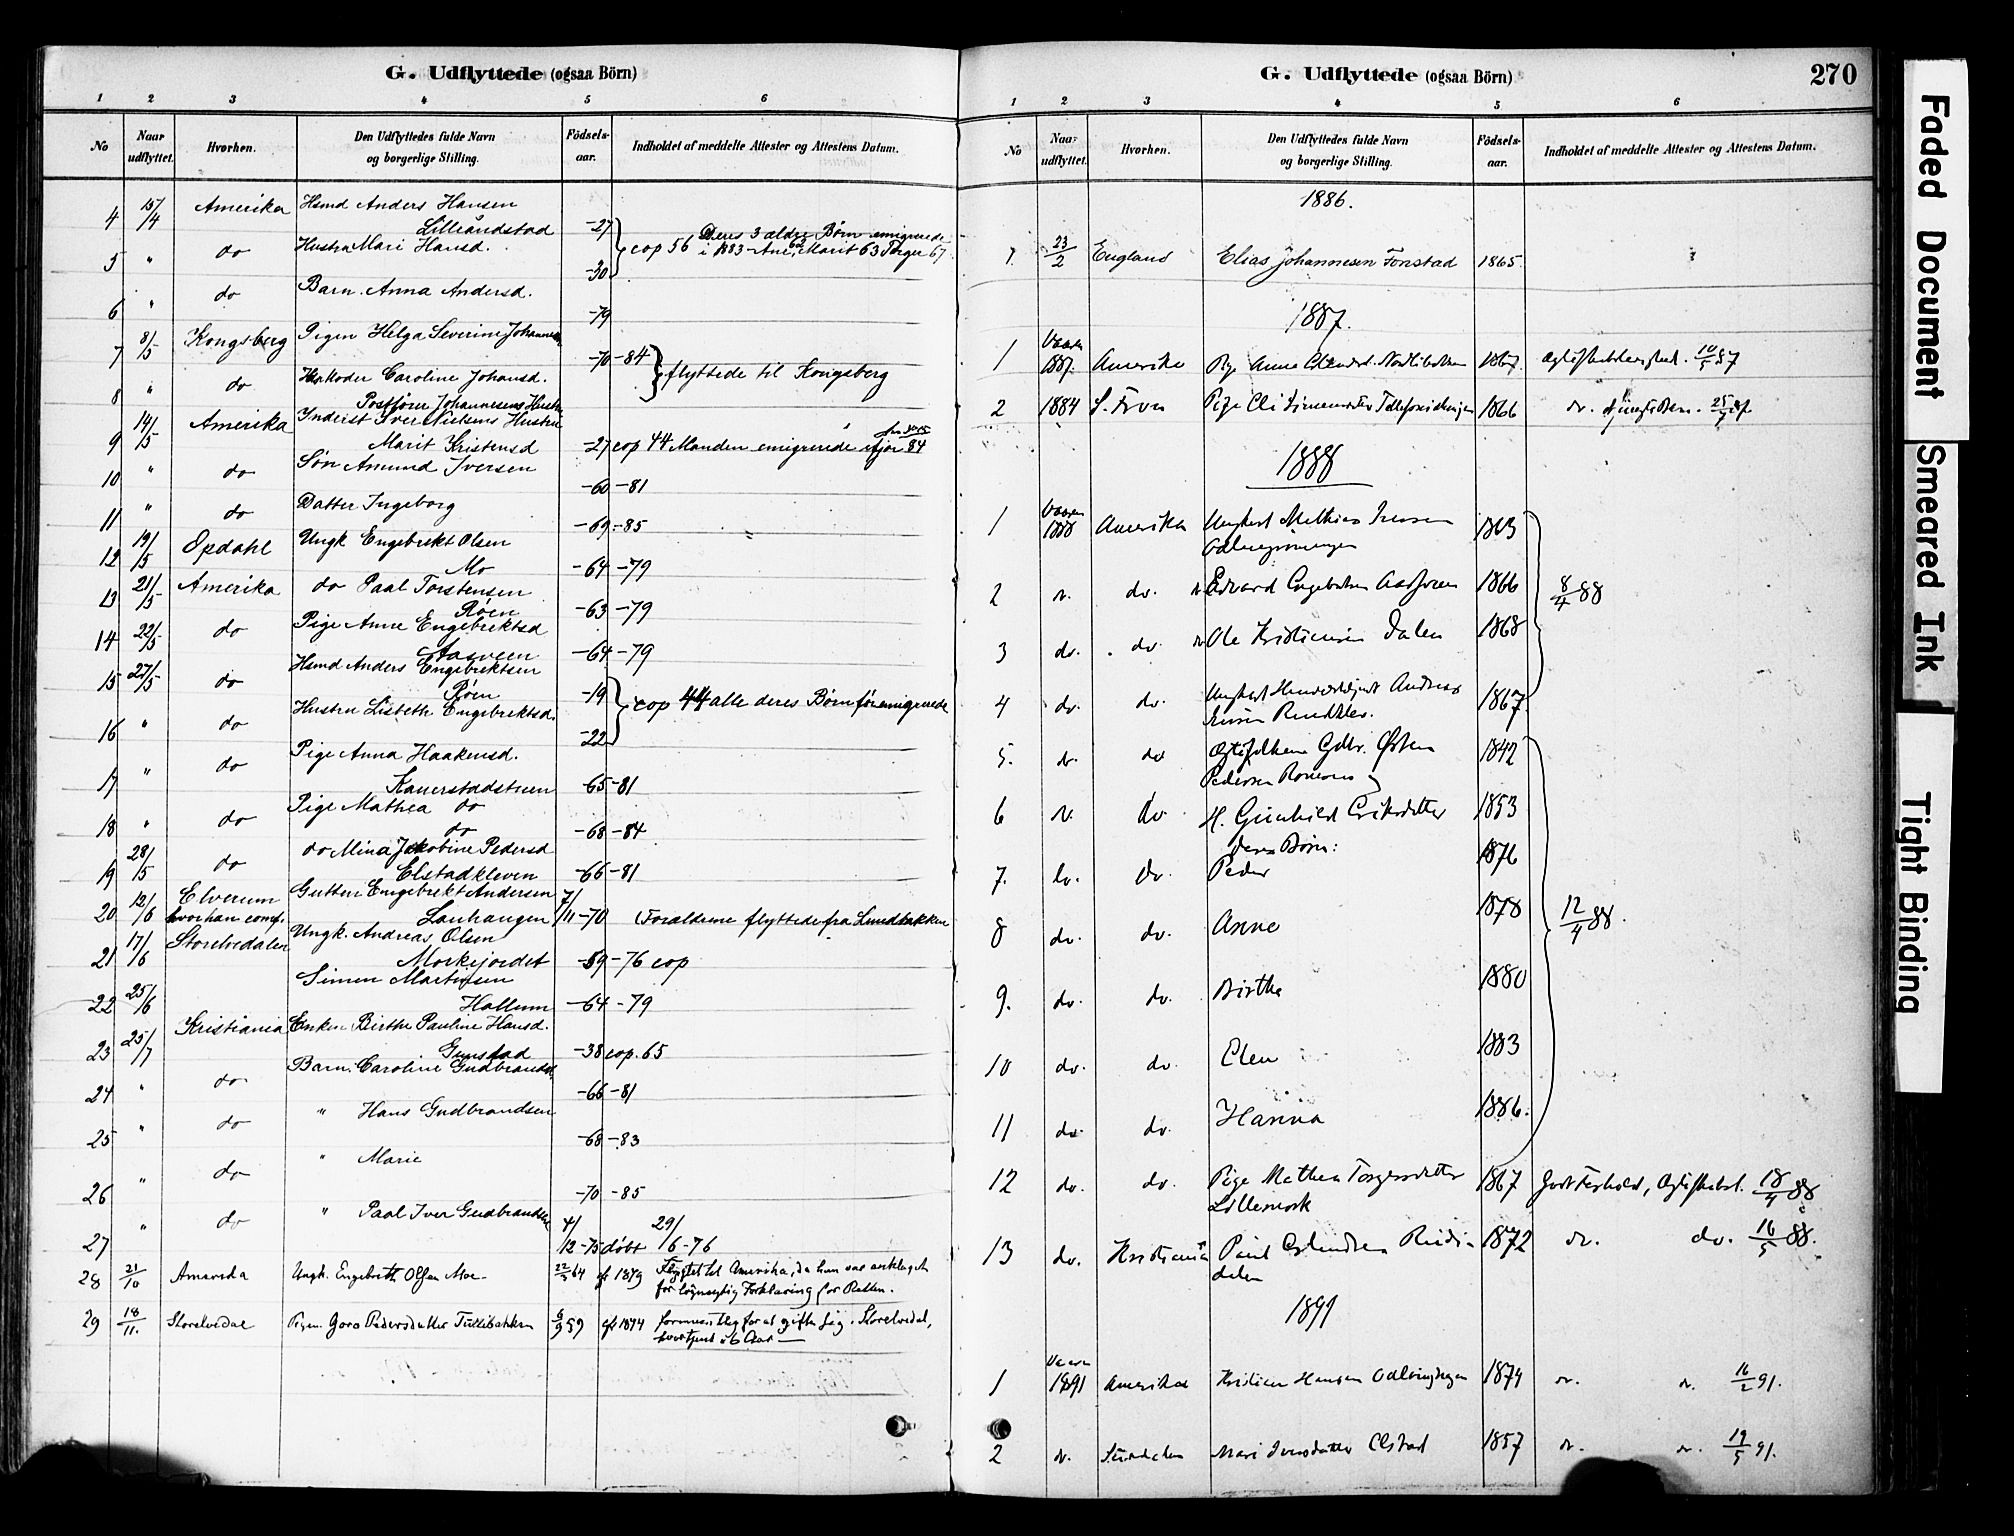 G. Udflyttede (ogsaa Börn)
1 2 3 4 5 6
No Naar udflyttet. Hvorhen. Den Udflyttedes fulde Navn og borgerlige Stilling. Födsels-aar. Indholdet af meddelte Attester og Attestens Datum.
4 15/4 Amerika Hsmd Anders Hansen
Lilleåndstad -27
5 " do Hustru Mari Hansd. -30 cop 56 Deres 3 ældre Børn emigrerede
i 1883 - Ane 62, Marit 63 Torger 67
6 " do Barn. Anna Andersd. -79
7 8/5 Kongsberg Pigen Helga Severine -70 -84
8 " do Caroline Johansd. flyttede til Kongsberg
Johannesens Hustru
9 14/5 Amerika Inderst Iver Nielsens Hustru
Marit Kristensd -27 cop 44 Manden emigrerede ifjor 84
10 " do Søn Amund Iversen -60 -81
11 " do Datter Ingeborg -69 -85
12 19/5 Opdahl Ungk Engebrekt Olsen
Mo -64 -79
13 21/5 Amerika do Paal Torstensen
Røen -63 -79
14 22/5 do Pige Anne Engebrektsd
Aasveen -64 -79
15 27/5 do Hsmd Anders Engebrektsen
Røen -19
16 " do Hustru Lisbeth Engebrektsd. -22 cop 44 alle deres Børn før emigrerede
17 " do Pige Anna Haakensd.
Kanerstadstuen -65 -81
18 " do Pige Mathea do
do -68 -84
19 28/5 do do Mina Jakobine Pedersd
Elstadkleven -66 -81
20 12/6 Elverum Gutten Engebrekt Andersen
hvor han conf. Lauhaugen 7/11 -70 (Forældrene flyttede fra Lundbakken
21 17/6 Storelvedalen Ungk. Andreas Olsen
Morkejordet -59 -76 cop
22 25/6 Simen Martinsen
Hallum -64 -79
23 25/7 Kristiania Enken Birthe Pauline Hansd.
Gunstad -38 cop. 65
24 " do Barn. Caroline Gudbrandsd. -66 -81
25 " do " Hans Gudbrandsen -68 -83
26 " do " Marie -70 -85
27 " do " Paal Iver Gudbrandsen 4/12 -75 døbt 29/6 -76
28 21/10 Amerika Ungk. Engebreth Olsen Moe 22/5 64 cf 1879 Flygtet til Amerika, da han var anklaget
for løgnagtig Forklaring for Retten.
29 18/11. Storelvedal Pigen Goro Pedersdatter Tullibakken 6/9 59 cf 1874 formentlig for at gifte sig i Storelvedal,
hvor tjent i 6 Aar
G. Udflyttede (ogsaa Börn) 270
1 2 3 4 5 6
No Naar udflyttet. Hvorhen. Den Udflyttedes fulde Navn og borgerlige Stilling. Födsels-aar. Indholdet af meddelte Attester og Attestens Datum.
1886.
1. 23/2 England Elias Johannesen Fonstad 1865
1887.
1 Vaaren 1887. Amerika Pige Anne 1867. 10/5 87
2 1884 S. Fron Pige 1866
1888
1 Vaaren 1888 Amerika Ungkarl Mathias Iversen 1863
2 do. Edvard Engebretsen Aasveen 1866 8/4 88
3 do. do. Ole Kristiansen Dalen 1868
4 do. do. Ungkarl Andreas 1867
5. do Østen 1842
Pedersen
6 do H. Gunhild Eriksdatter 1853
deres Børn:
7. do. do. Peder 1876
8 do. do. Anne 1878 12/4 88.
9. do. do. Birthe 1880
10 do. do. Elen 1883
11 do. do. Hanna 1886.
12 do. do. Pige Mathea Torgersdatter 1867 18/4 88
Lillemork
13 do. Kristiania Paul 1872 do. 16/5 88.
dalen
1891
1 Vaaren 1891 Amerika Kristian Hansen 1874 16/2 91.
2 Mari Iversdatter Elstad 1857 19/5 91.
Faded Document
Smeared Ink
Tight Binding